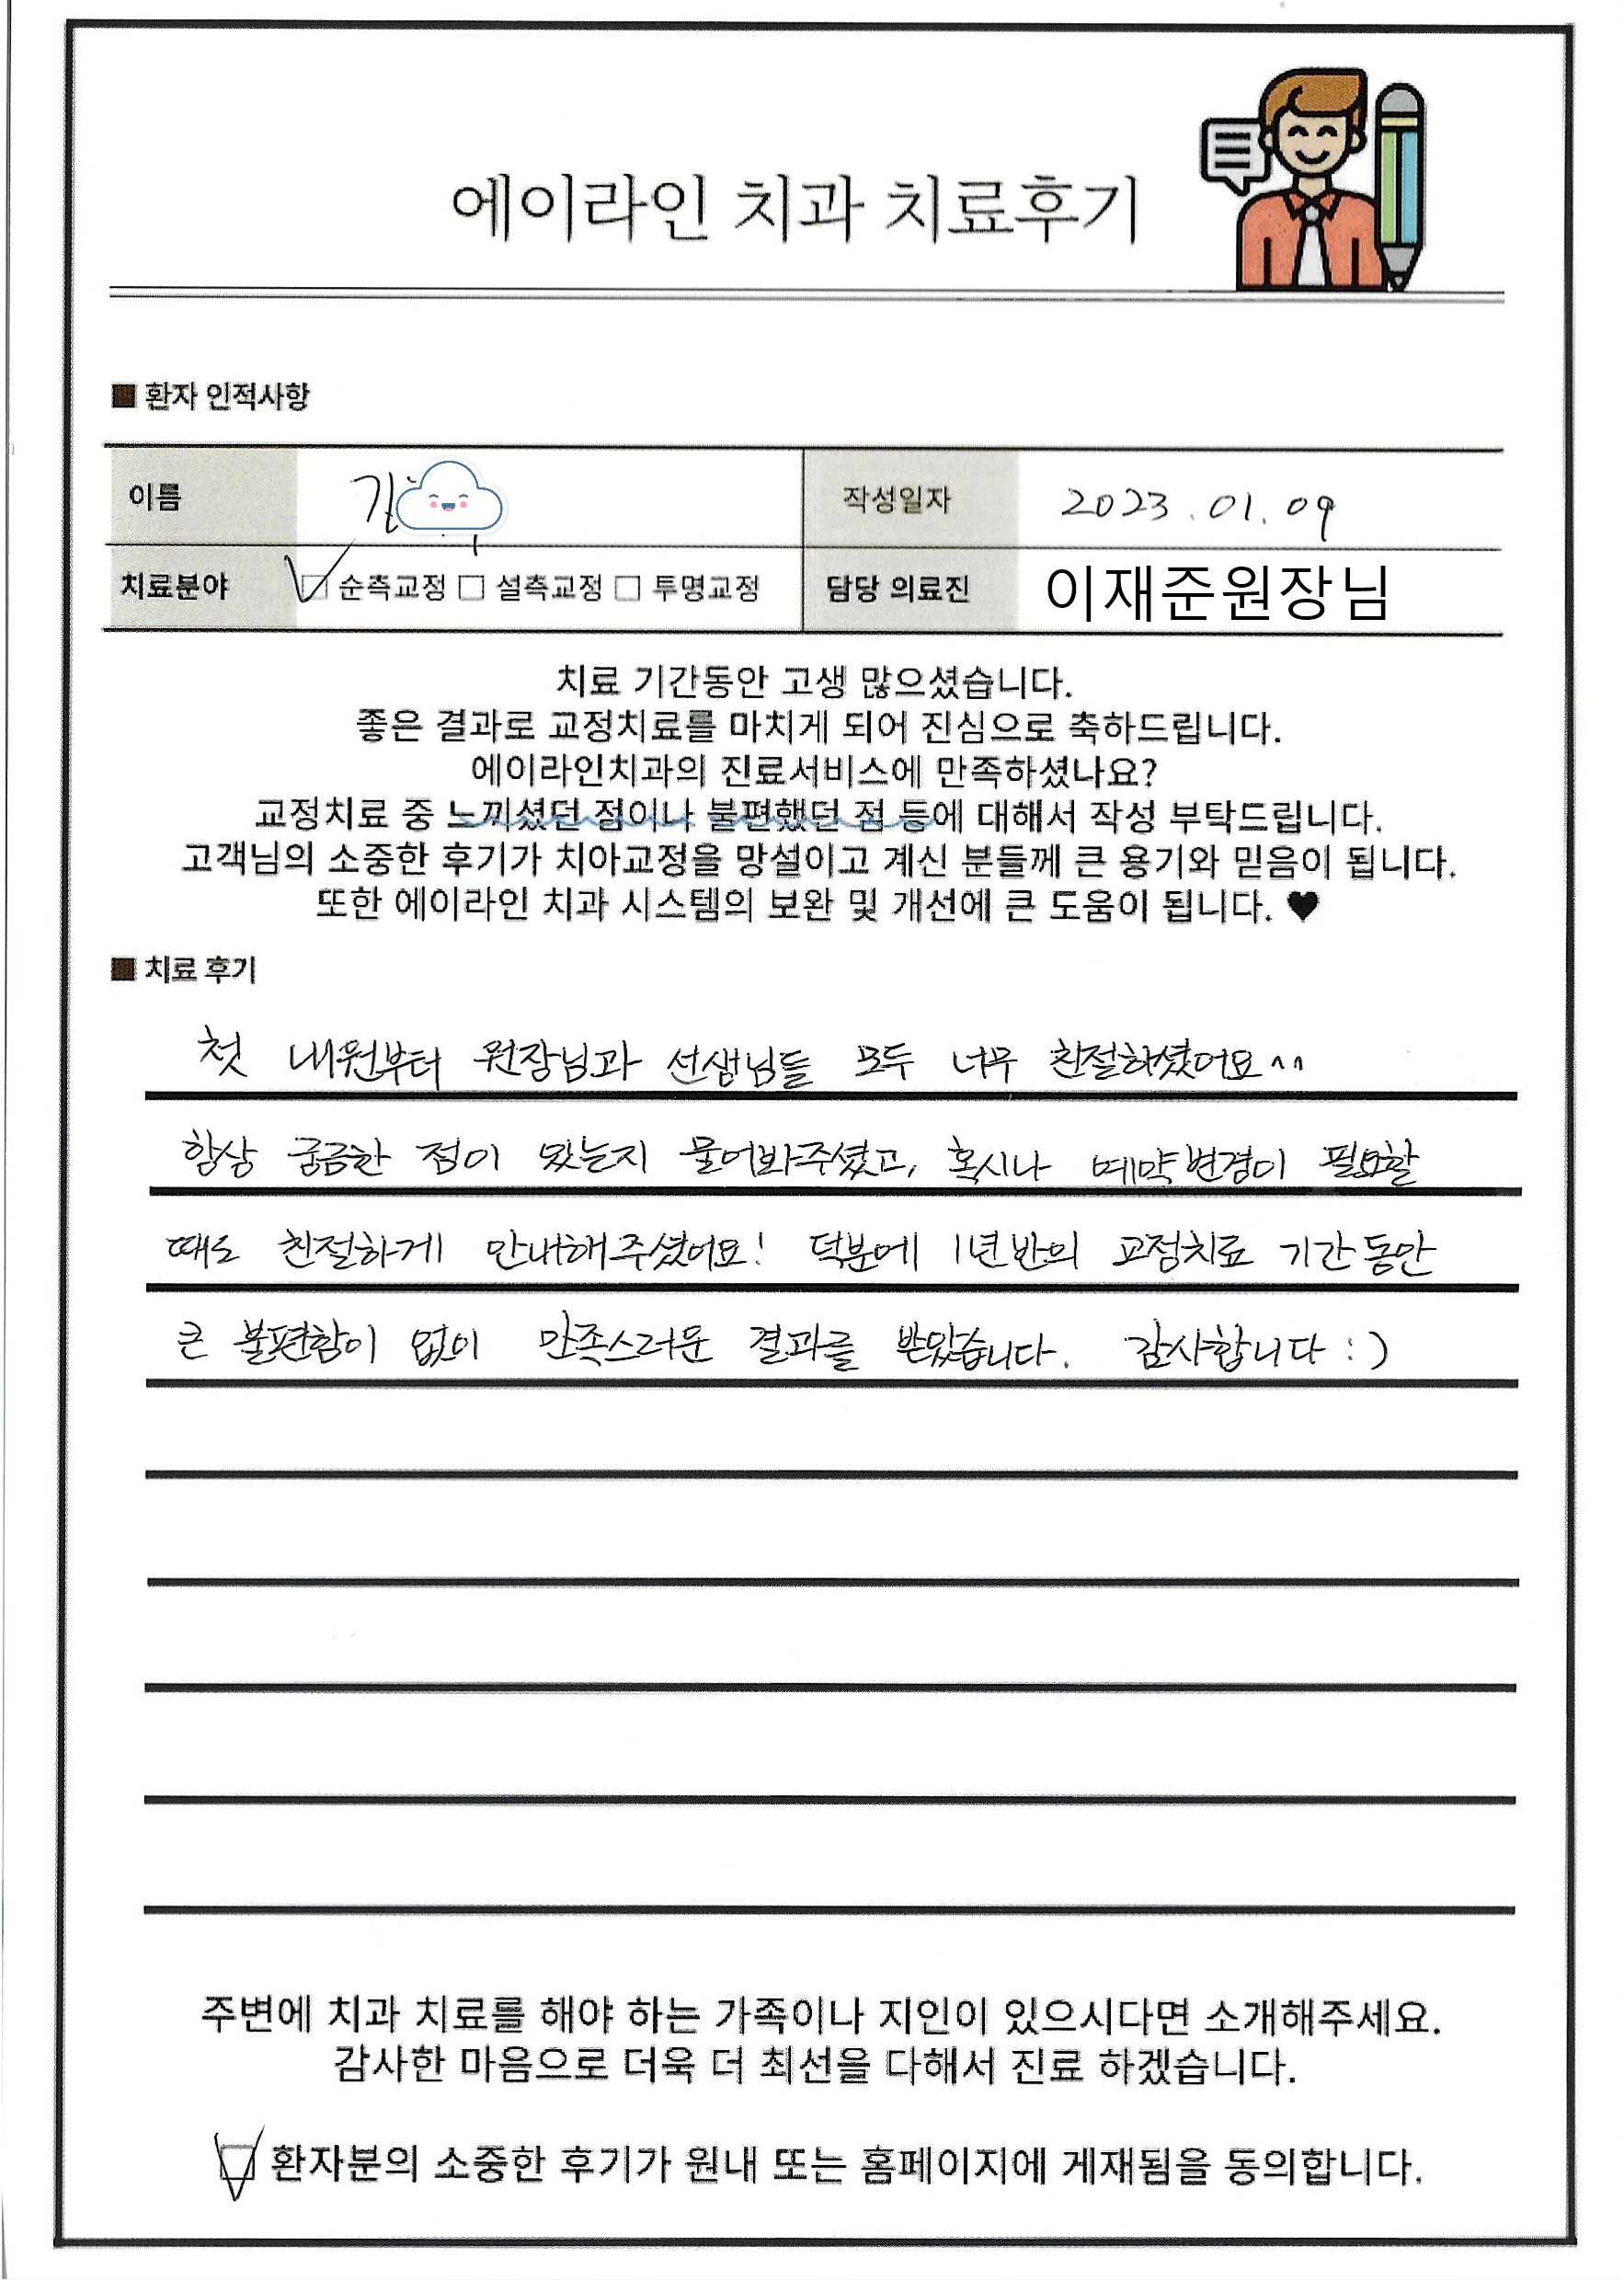 에이라인 치과 치료후기
■ 환자 인적사항
이름 김 작성일자 2023.01.09
치료분야 ☑ 순측교정 □ 설측교정 □ 투명교정 담당 의료진 이재준원장님
치료 기간동안 고생 많으셨습니다.
좋은 결과로 교정치료를 마치게 되어 진심으로 축하드립니다.
에이라인치과의 진료서비스에 만족하셨나요?
교정치료 중 느끼셨던 점이나 불편했던 점 등에 대해서 작성 부탁드립니다.
고객님의 소중한 후기가 치아교정을 망설이고 계신 분들께 큰 용기와 믿음이 됩니다.
또한 에이라인 치과 시스템의 보완 및 개선에 큰 도움이 됩니다. ♥
■ 치료 후기
첫 내원부터 원장님과 선생님들 모두 너무 친절하셨어요^^
항상 궁금한 점이 있는지 물어봐주셨고, 혹시나 예약변경이 필요할
때도 친절하게 안내해주셨어요! 덕분에 1년반의 교정치료 기간동안
큰 불편함이 없이 만족스러운 결과를 받았습니다. 감사합니다 :)
주변에 치과 치료를 해야 하는 가족이나 지인이 있으시다면 소개해주세요.
감사한 마음으로 더욱 더 최선을 다해서 진료 하겠습니다.
☑ 환자분의 소중한 후기가 원내 또는 홈페이지에 게재됨을 동의합니다.